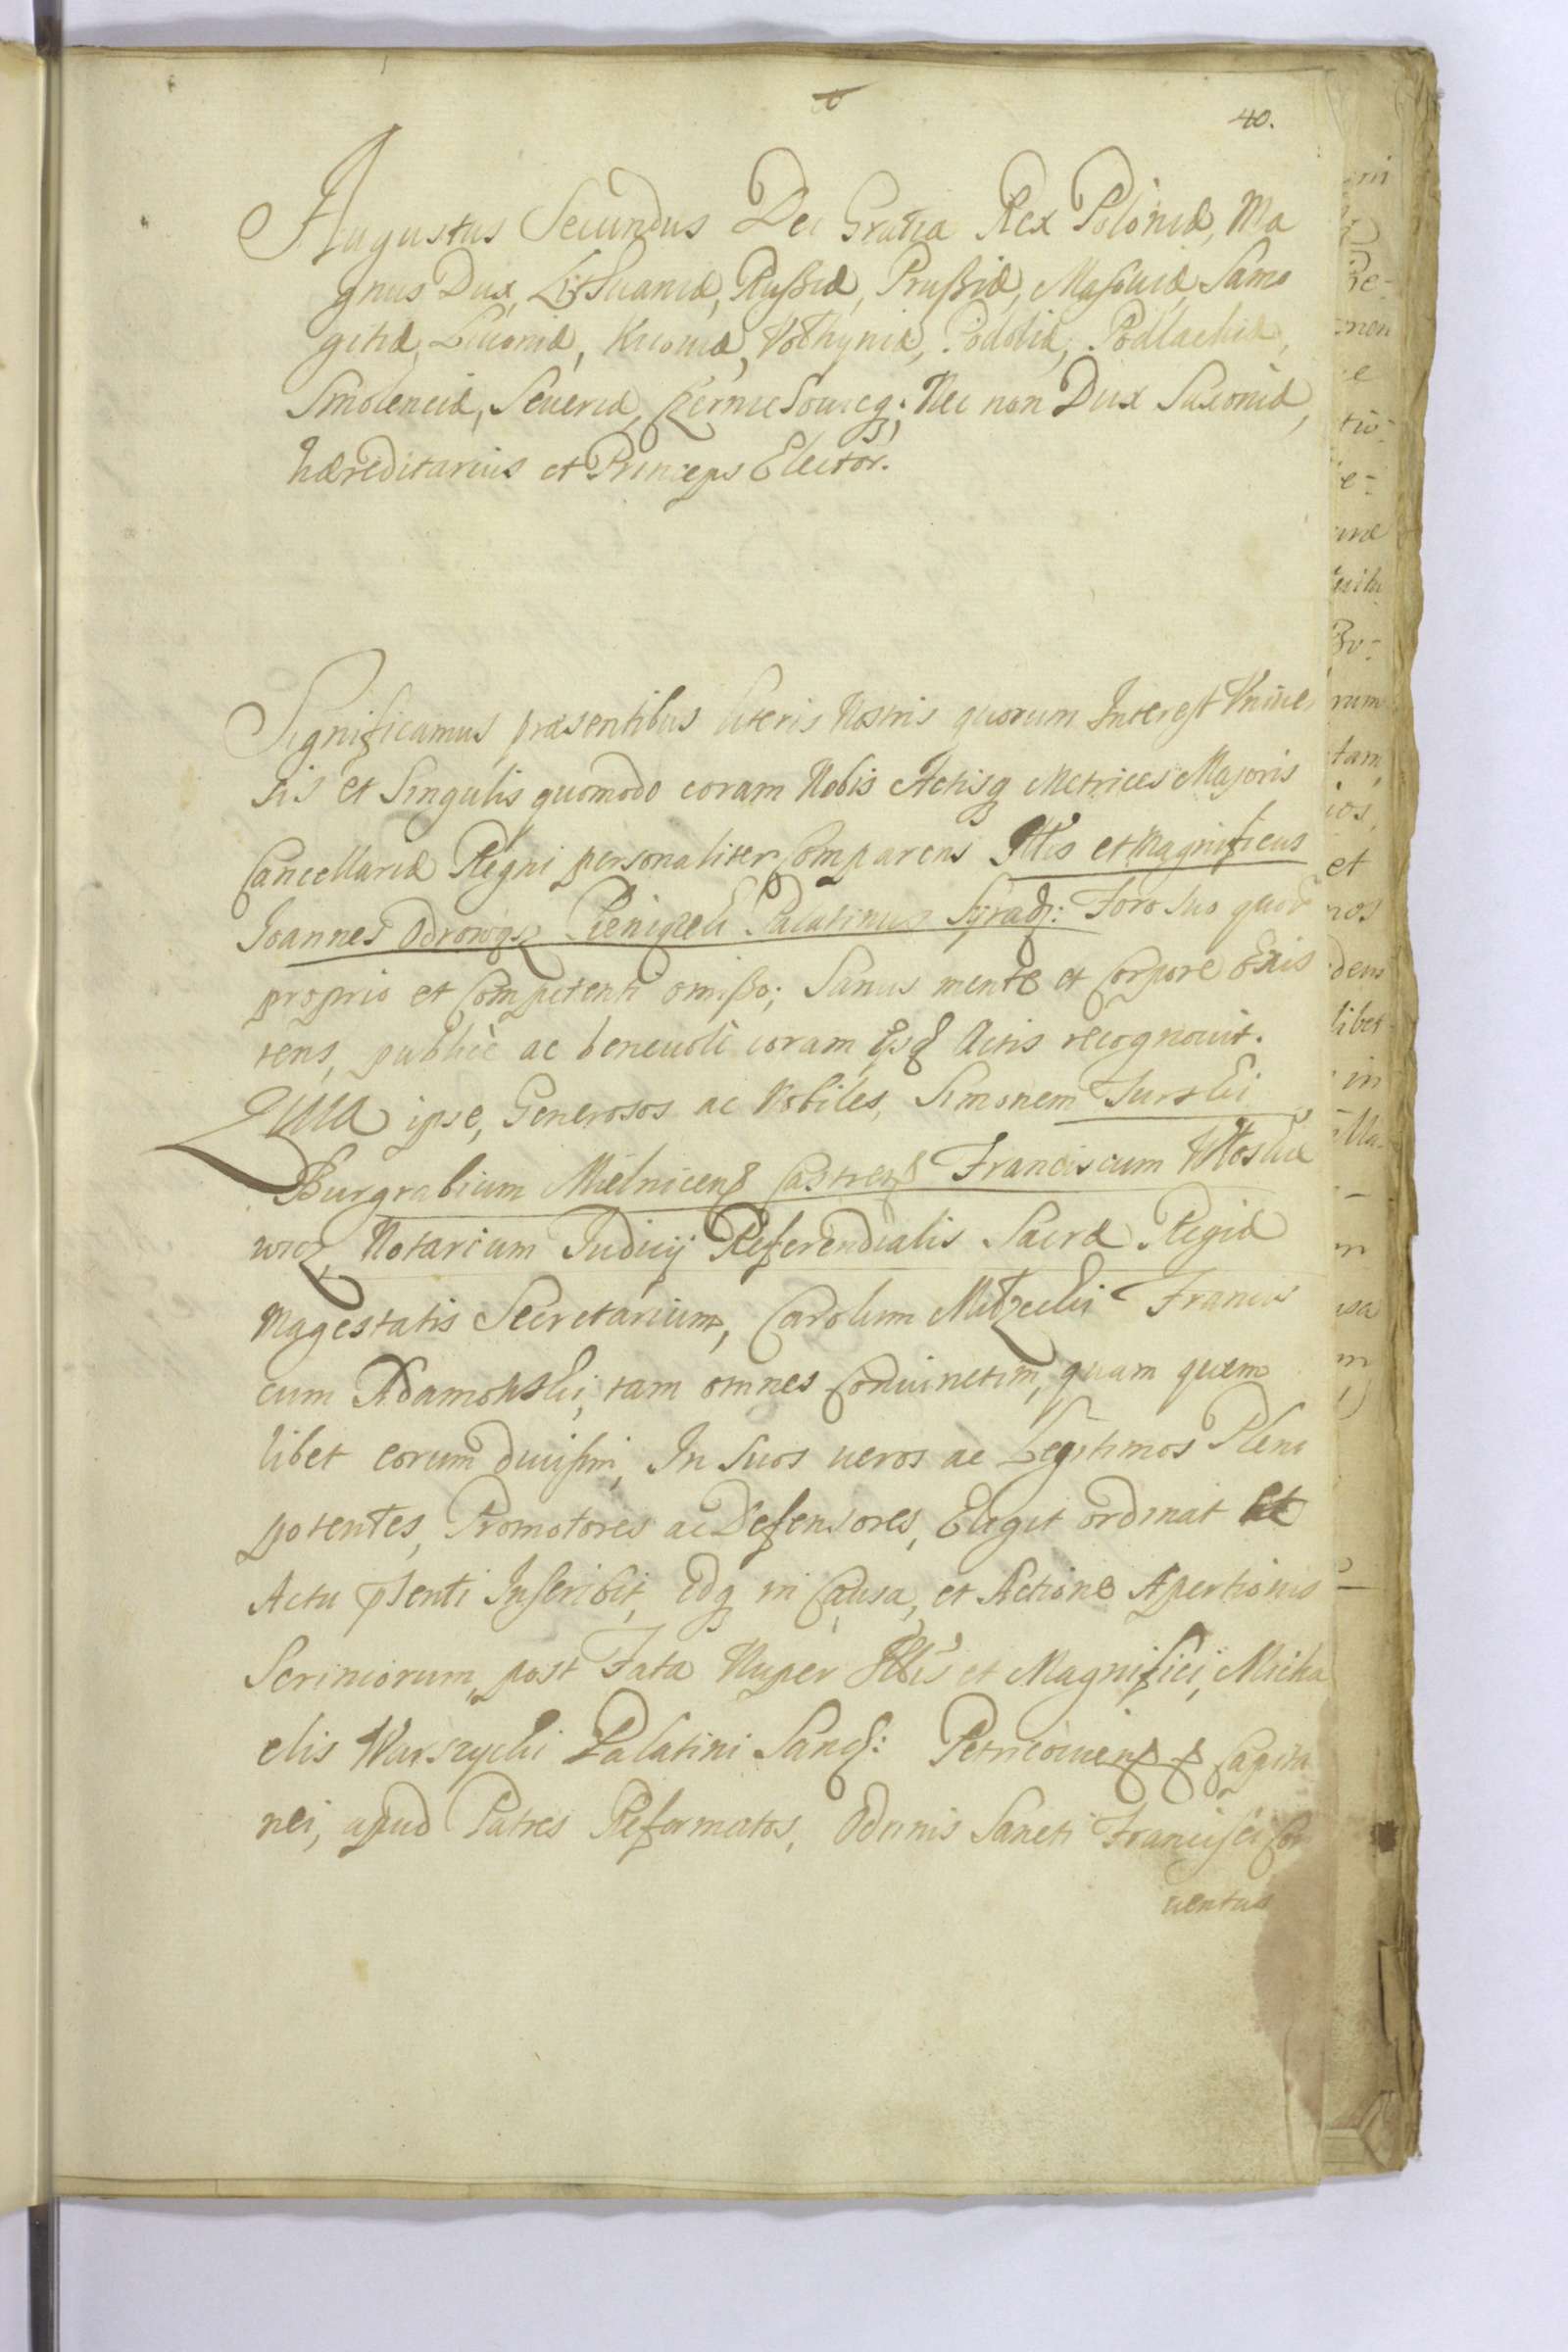 40.
Augustus Secundus Dei Gratia Rex Poloniæ, Ma
gnus Dux, Lithuaniæ, Rußiæ, Prußiæ, Masouiæ, Samo
gitiæ, Liuoniæ, Kiiouiæ, Volhyniæ, Podoliæ, Podlachiæ,
Smolenciæ, Seueriæ, Czernichouięq; Nec non Dux Saxoniæ,
hæreditarius et Princeps Elector.
Significamus præsentibus literis Nostris quorum Interest Vniuer
sis et Singulis quomodo coram Nobis Actisq Metrices Majoris
Cancellariæ Regni personaliter Comparens Illis et Magnificus
Joannes Odrowąz Pieniązek Palatinus Syradz: Foro suo quod
proprio et Competenti omißo; Sanus mente et Corpore Exis
tens, publicè ac beneuolè coram Actis recognouit.
Quia ipse, Generosos ac Nobiles, Simonem Turski
Burgrabium Mielnicens Castrens Franciscum Wosku
wicz, Notarium Judicij Referendialis Sacræ Regiæ
Magestatis Secretarium, Carolum Francis
cum Adamowski, tam omnes Coniunctim, quam quem
libet eorum diuisim, In Suos ueros ac Legitimos Pleni
potentes, Promotores ac Defensores, Elegit ordinat et
Actu psenti Inscribit, Idq in Causa, et Actione Apertionis
Scriniorum, post Fata Nuper Illis et Magnifici, Micha
elis Warszycki Palatini Sand: Petricouiens Capita
nei, apud Patres Reformatos, Odinis Sancti Francisci Con
uentus